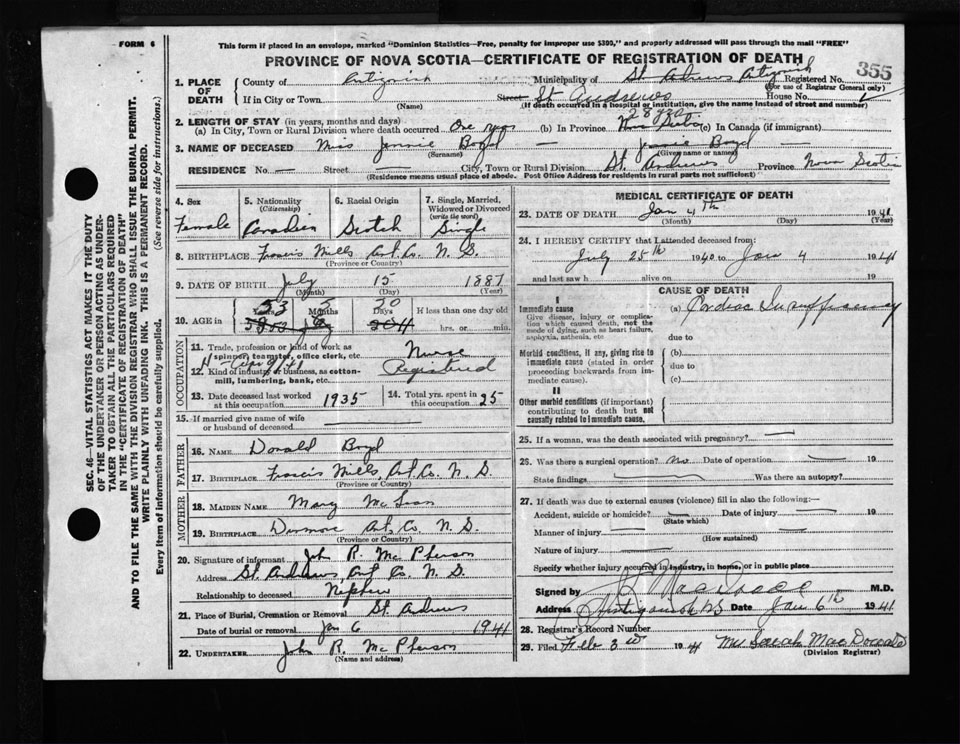 FORM 6
This form if placed in an envelope, marked "Dominion Statistics—Free, penalty for improper use $300," and properly addressed will pass through the mail "FREE"
PROVINCE OF NOVA SCOTIA—CERTIFICATE OF REGISTRATION OF DEATH
355
1. PLACE OF DEATH County of Antigonish Municipality of St Andrews Antigonish Registered No. (For use of Registrar General only)
If in City or Town (Name) Street St Andrews House No.
(If death occurred in a hospital or institution, give the name instead of street and number)
2. LENGTH OF STAY (in years, months and days)
(a) In City, Town or Rural Division where death occurred One year (b) In Province 28 yrs Nova Scotia (c) In Canada (if immigrant)
3. NAME OF DECEASED Miss Jennie Boyd — Jennie Boyd —
(Surname) (Given name or names)
RESIDENCE No. — Street — City, Town or Rural Division St. Andrews Province Nova Scotia
(Residence means usual place of abode. Post Office Address for residents in rural parts not sufficient)
4. Sex Female
5. Nationality (Citizenship) Canadian
6. Racial Origin Scotch
7. Single, Married, Widowed or Divorced (write the word) Single
8. BIRTHPLACE Francis Mills Ant. Co. N. S.
(Province or Country)
9. DATE OF BIRTH July 15 1887
(Month) (Day) (Year)
10. AGE in 53 Years 5 Months 20 Days If less than one day old hrs. or min.
OCCUPATION
11. Trade, profession or kind of work as spinner, teamster, office clerk, etc. Nurse
12. Kind of industry or business, as cotton-mill, lumbering, bank, etc. Registered
13. Date deceased last worked at this occupation 1935
14. Total yrs. spent in this occupation 25
15. If married give name of wife or husband of deceased
FATHER
16. NAME Donald Boyd
17. BIRTHPLACE Francis Mills, Ant. Co. N. S.
(Province or Country)
MOTHER
18. MAIDEN NAME Mary McLean
19. BIRTHPLACE Ant. Co. N. S.
(Province or Country)
20. Signature of informant John R. McPherson
Address St. Andrews, Ant Co. N. S.
Relationship to deceased Nephew
21. Place of Burial, Cremation or Removal St. Andrews
Date of burial or removal Jan 6 1941
22. UNDERTAKER John R. McPherson
(Name and address)
MEDICAL CERTIFICATE OF DEATH
23. DATE OF DEATH Jan 4th 1941
(Month) (Day) (Year)
24. I HEREBY CERTIFY that I attended deceased from:
July 25th 1940 to Jan 4 1941
and last saw h alive on 19
CAUSE OF DEATH
I
Immediate cause
Give disease, injury or complication which caused death, not the mode of dying, such as heart failure, asphyxia, asthenia, etc
(a) Cardiac Insufficiency
due to
Morbid conditions, if any, giving rise to immediate cause (stated in order proceeding backwards from immediate cause).
(b)
due to
(c)
II
Other morbid conditions (if important) contributing to death but not causally related to immediate cause.
25. If a woman, was the death associated with pregnancy?
26. Was there a surgical operation? no Date of operation 19
State findings Was there an autopsy?
27. If death was due to external causes (violence) fill in also the following:
Accident, suicide or homicide? Date of injury 19
(State which)
Manner of injury
(How sustained)
Nature of injury
Specify whether injury occurred in industry, in home, or in public place
Signed by MacIsaac M.D.
Address Antigonish NS Date Jan 6th 1941
28. Registrar's Record Number
29. Filed Feb 3rd 1941 Mrs Sarah MacDonald
(Division Registrar)
SEC. 46—VITAL STATISTICS ACT MAKES IT THE DUTY
OF THE UNDERTAKER OR PERSON ACTING AS UNDERTAKER TO OBTAIN ALL THE PARTICULARS REQUIRED
IN THE "CERTIFICATE OF REGISTRATION OF DEATH"
AND TO FILE THE SAME WITH THE DIVISION REGISTRAR WHO SHALL ISSUE THE BURIAL PERMIT.
WRITE PLAINLY WITH UNFADING INK. THIS IS A PERMANENT RECORD.
Every item of information should be carefully supplied. (See reverse side for instructions.)